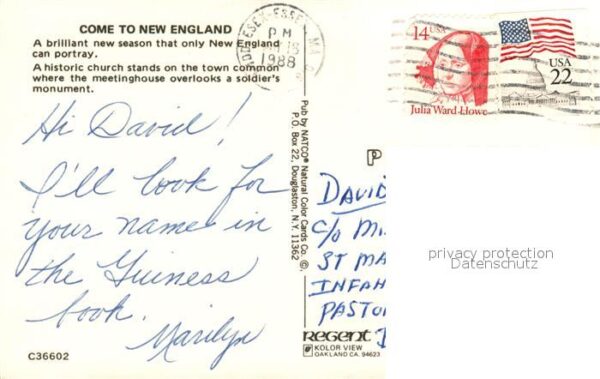 COME TO NEW ENGLAND
A brilliant new season that only New England
can portray.
A historic church stands on the town common
where the meetinghouse overlooks a soldier's
monument.
Hi David!
I'll look for
your name in
the Guiness
book.
Marilyn
C36602
Pub by NATCO® Natural Color Cards Co. ©,
P.O. Box 22, Douglaston, N.Y. 11362
MIDDLESEX-ESSEX MA
PM
18
1988
14
USA
Julia Ward Howe
USA
22
P
DAVID
c/o M
ST MA
INFAN
PASTO
privacy protection
Datenschutz
REGENT
KOLOR VIEW
OAKLAND CA. 94623